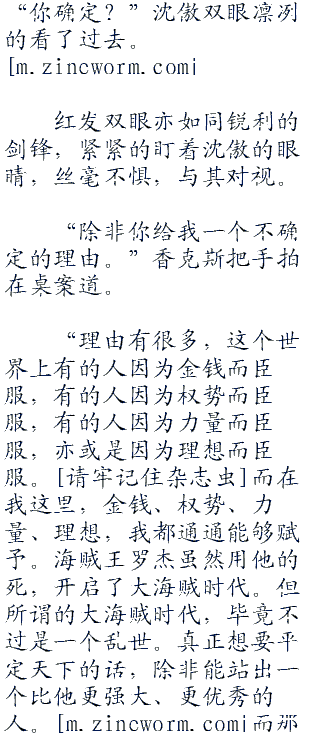 “你确定？”沈傲双眼凛冽
的看了过去。
[m.zincworm.com]
红发双眼亦如同锐利的
剑锋，紧紧的盯着沈傲的眼
睛，丝毫不惧，与其对视。
“除非你给我一个不确
定的理由。”香克斯把手拍
在桌案道。
“理由有很多，这个世
界上有的人因为金钱而臣
服，有的人因为权势而臣
服，有的人因为力量而臣
服，亦或是因为理想而臣
服。[请牢记住杂志虫]而在
我这里，金钱、权势、力
量、理想，我都通通能够赋
予。海贼王罗杰虽然用他的
死，开启了大海贼时代。但
所谓的大海贼时代，毕竟不
过是一个乱世。真正想要平
定天下的话，除非能站出一
个比他更强大、更优秀的
人。[m.zincworm.com]而那